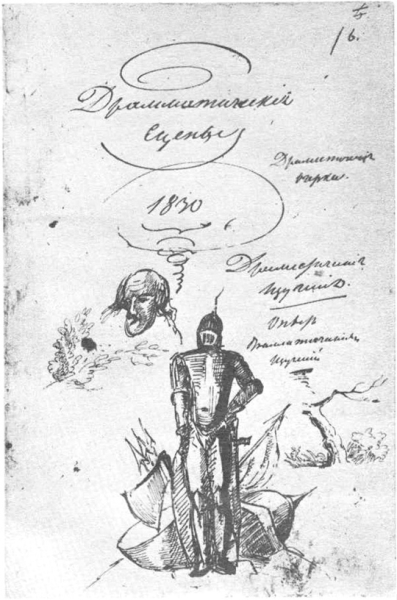 Драмматическія
Сцены
1830
Драматическіе
очерки.
Драматическія
Изученія.
Опытъ
Драматическихъ
Изученій